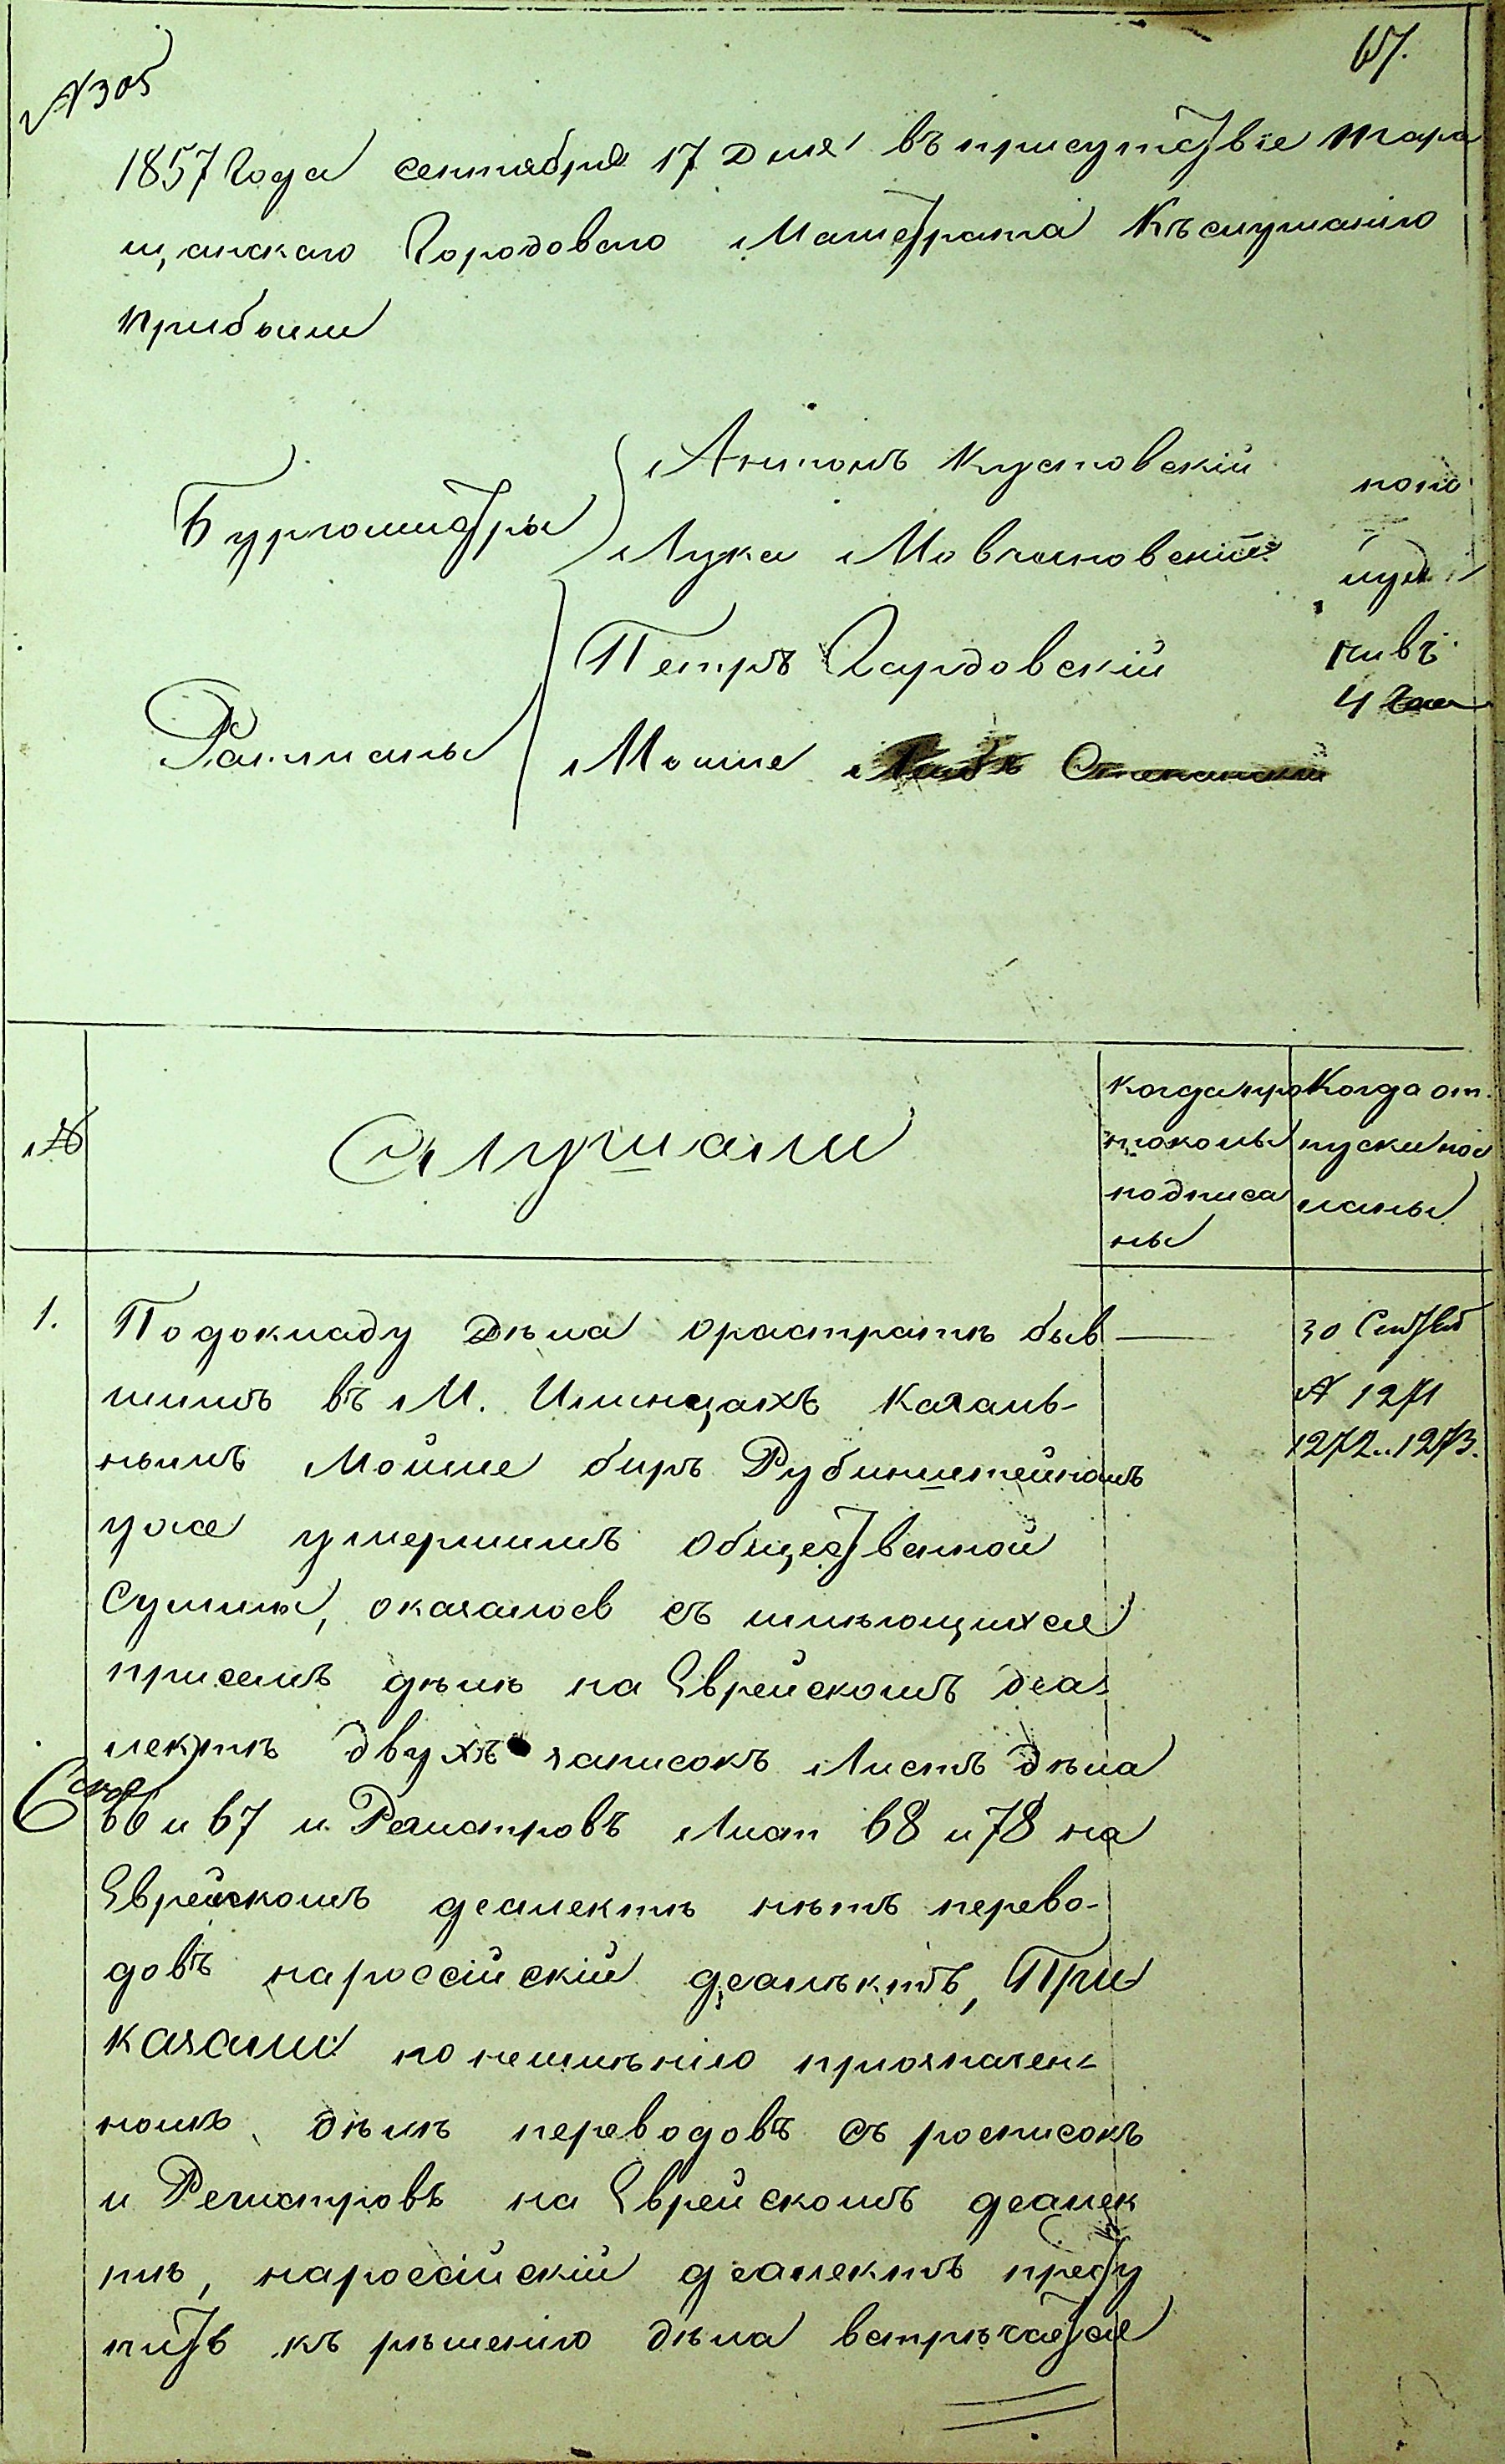 67.
№ 305
1857 Года сентября 17 Дня въ присутствіе Тара
щанскаго Городоваго Магистрата Къ слушанію
прибыли
Бургомистры
Антонъ Кустовскій
Лука Мовчановскій
попо
луд
Ратманы
Петръ Гардовскій
Мошие
нивъ
4 Часа
№
Слушали
Когда про
токолы
подписа
ны
Когда от
пуски пос
ланы
1.
По докладу Дѣла о растратѣ быв
шимъ въ М. Илинцахъ Казаль-
нымъ Мойше биръ Рубинштейномъ
уже умершимъ общественной
суммы, оказалось съ имѣющихся
при семъ дѣлѣ на Еврейскомъ деа
лектѣ двухъ записокъ Листъ дѣла
66 и 67 и Регистровъ Лист 68 и 78 на
Еврейскомъ деалектѣ нѣтъ перево-
довъ на россійскій деалъктъ, При
казали: по неимѣнію приозначен-
номъ дѣлѣ переводовъ съ росписокъ
и Регистровъ на Еврейскомъ деалек
тѣ, на россійскій деалектъ присту
пить къ рѣшенію дѣла встрѣчается
30 Сентяб
№ 1271
1272..1273.